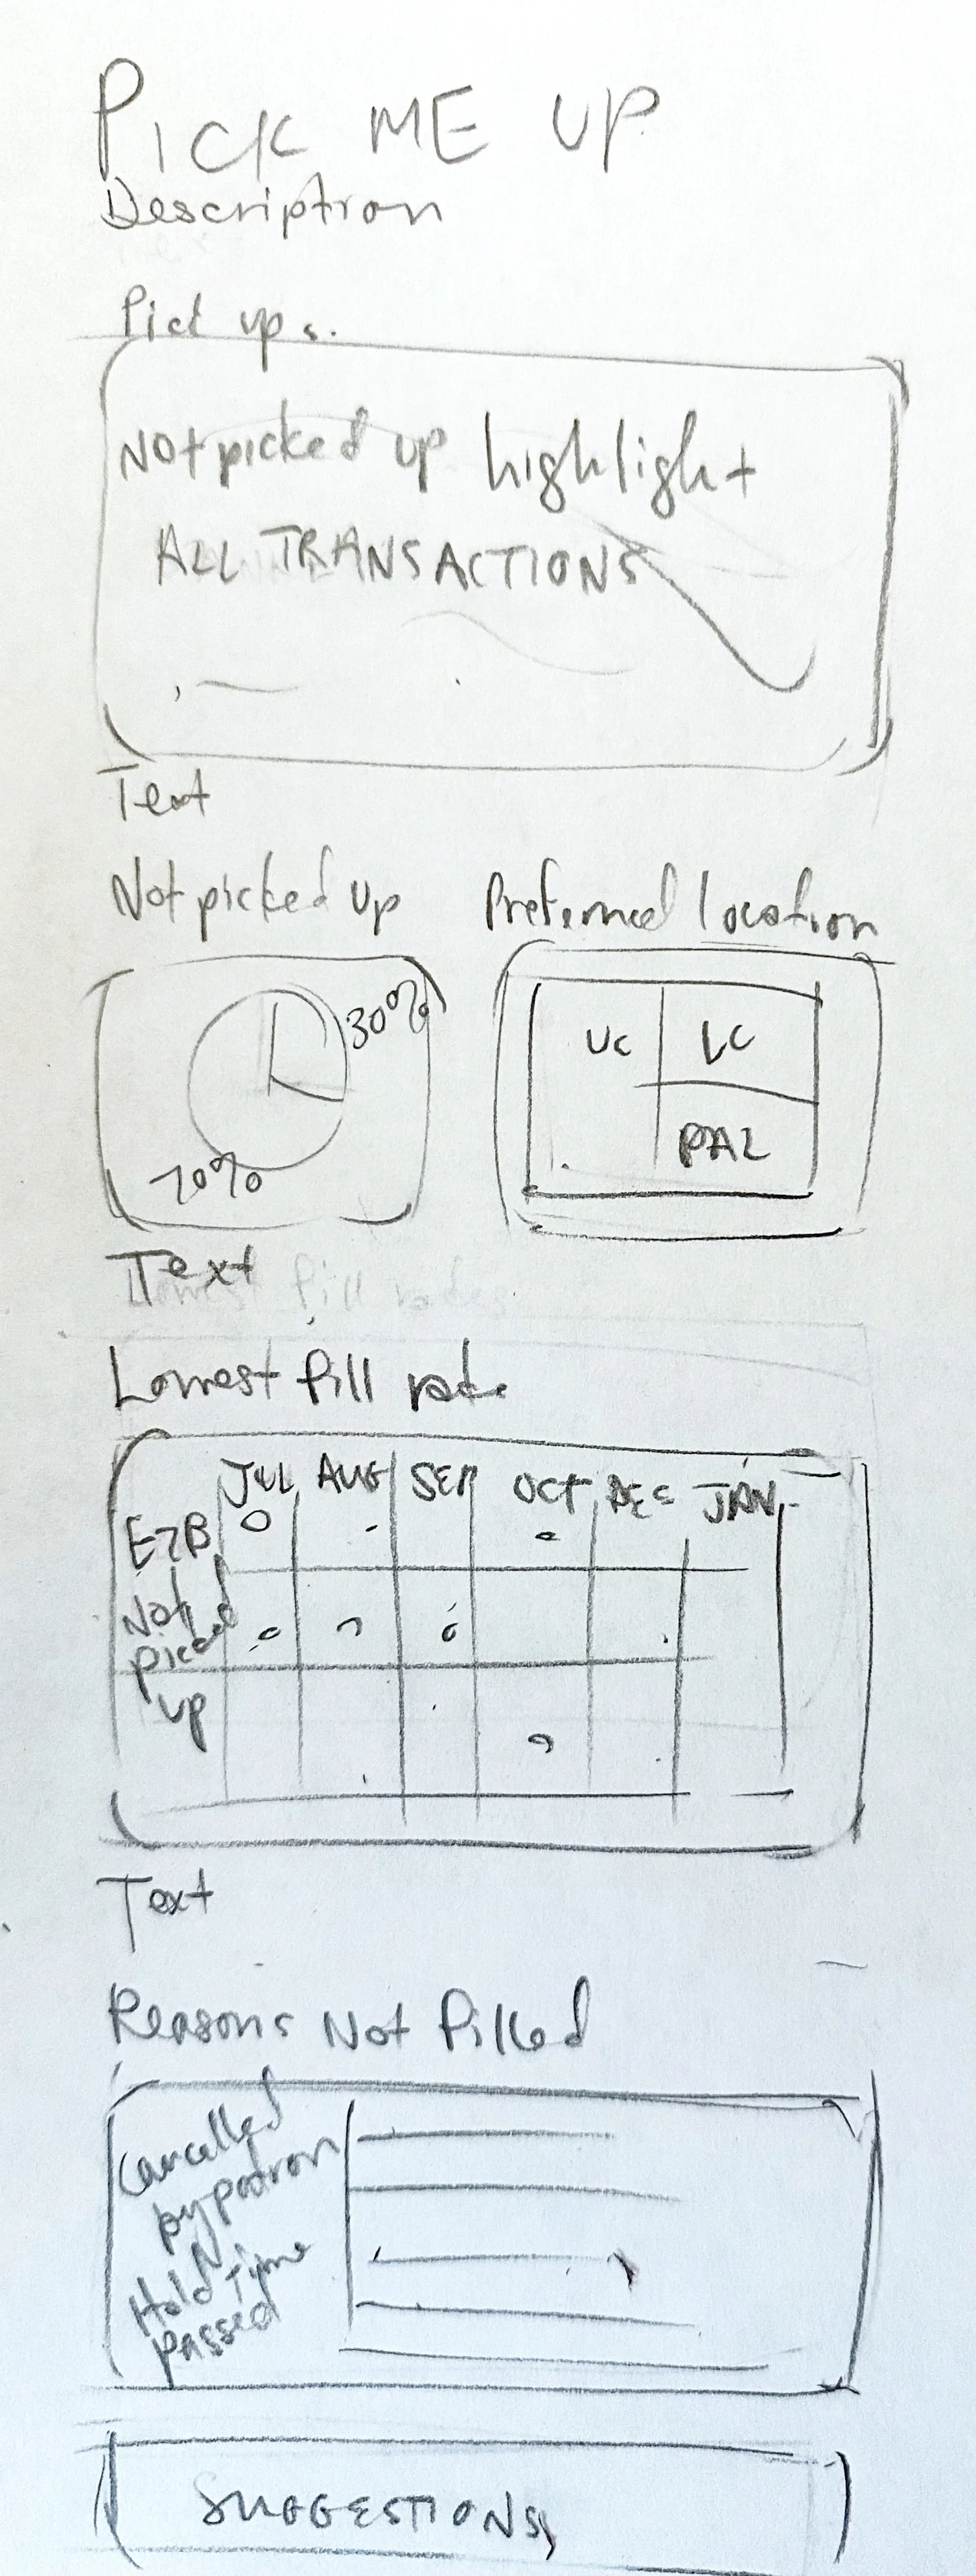 PICK ME UP
Description
Pick ups.
Not picked up highlight
ALL TRANSACTIONS
Text
Not picked up
Preferred location
30%
70%
UC
LC
PAL
Text
Lowest fill rate
JUL AUG SEP OCT DEC JAN
EZB
Not
picked
up
Text
Reasons Not Filled
Cancelled
by patron
Hold Time
passed
SUGGESTIONS